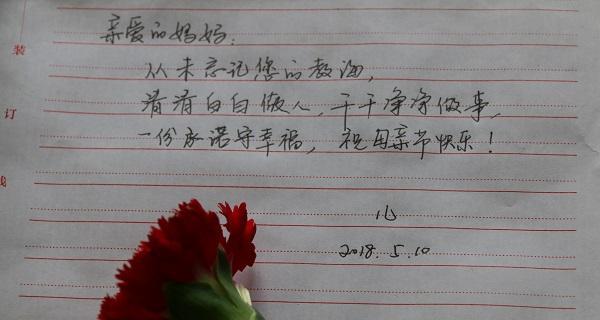 亲爱的妈妈:
从未忘记您的教诲,
清清白白做人,干干净净做事,
一份承诺守幸福,祝母亲节快乐!
心
2018.5.10
装
订
线